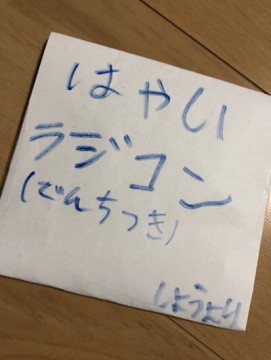 はやい
ラジコン
(でんちつき)
しょうより